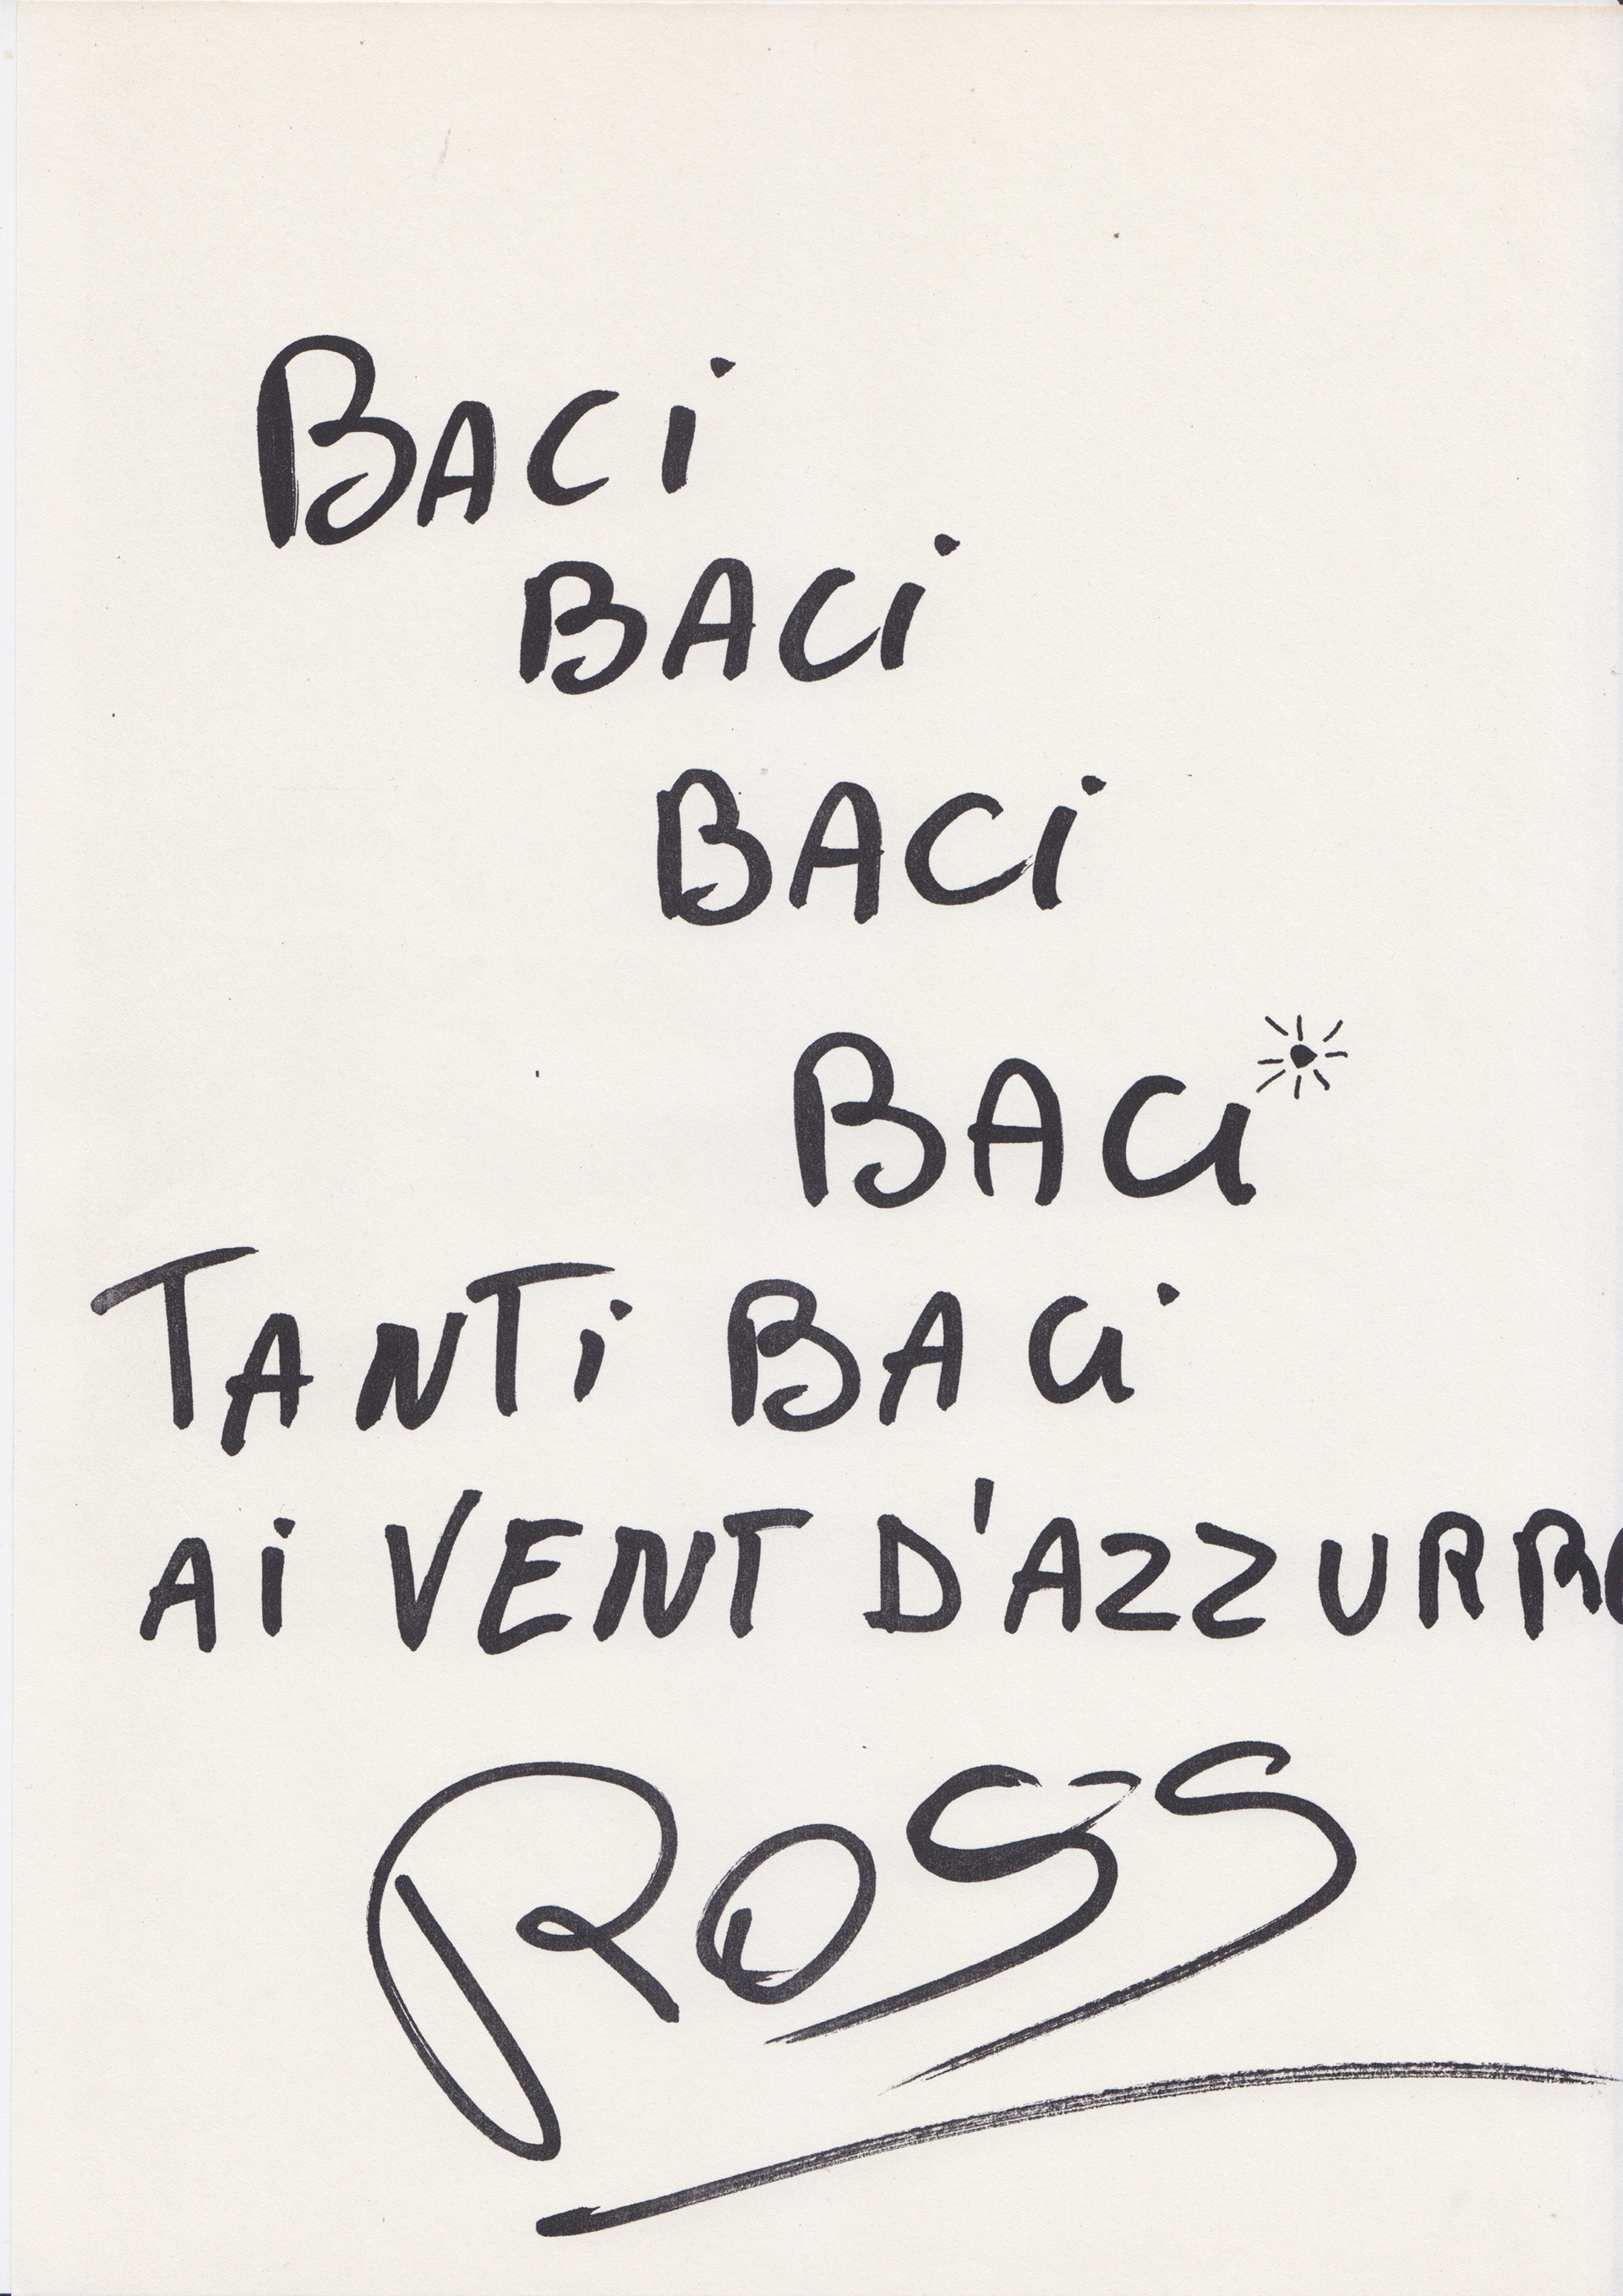 BACi
BACi
BACi
BACi
TANTi BACi
Ai VENT D'AZZURRO
ROSS